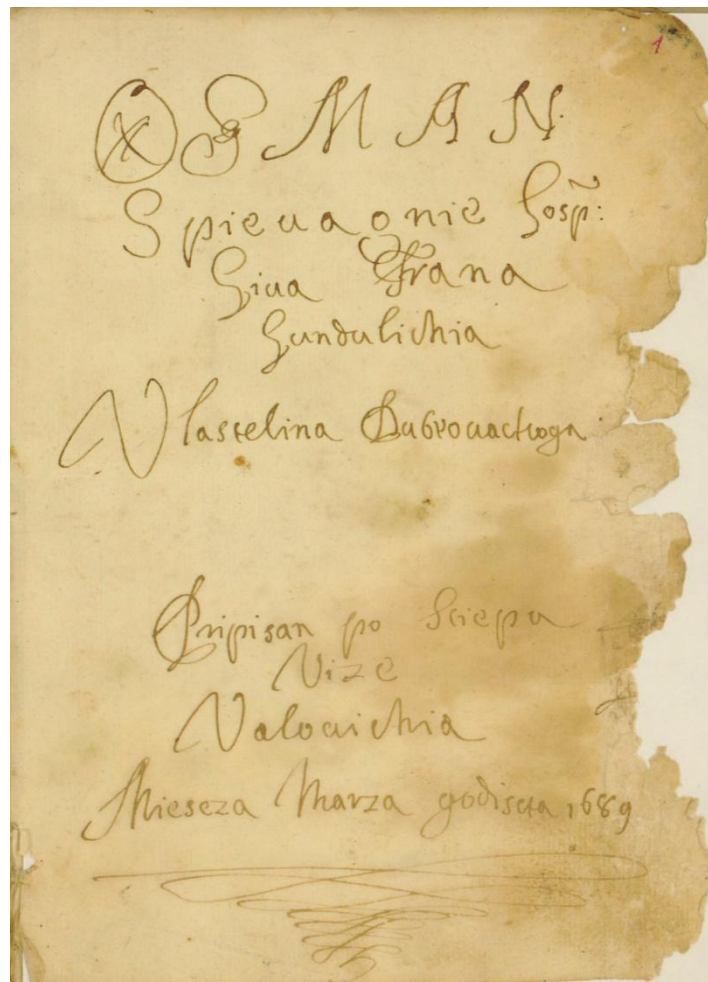 1
OSMAN
Spieuagnie Gosp:
Giva Frana
Gundulichia
Vlastelina Dubrouackoga
Pripisan po Sciepu
Vize
Valouichia
Mieseza Marza godiscta 1689